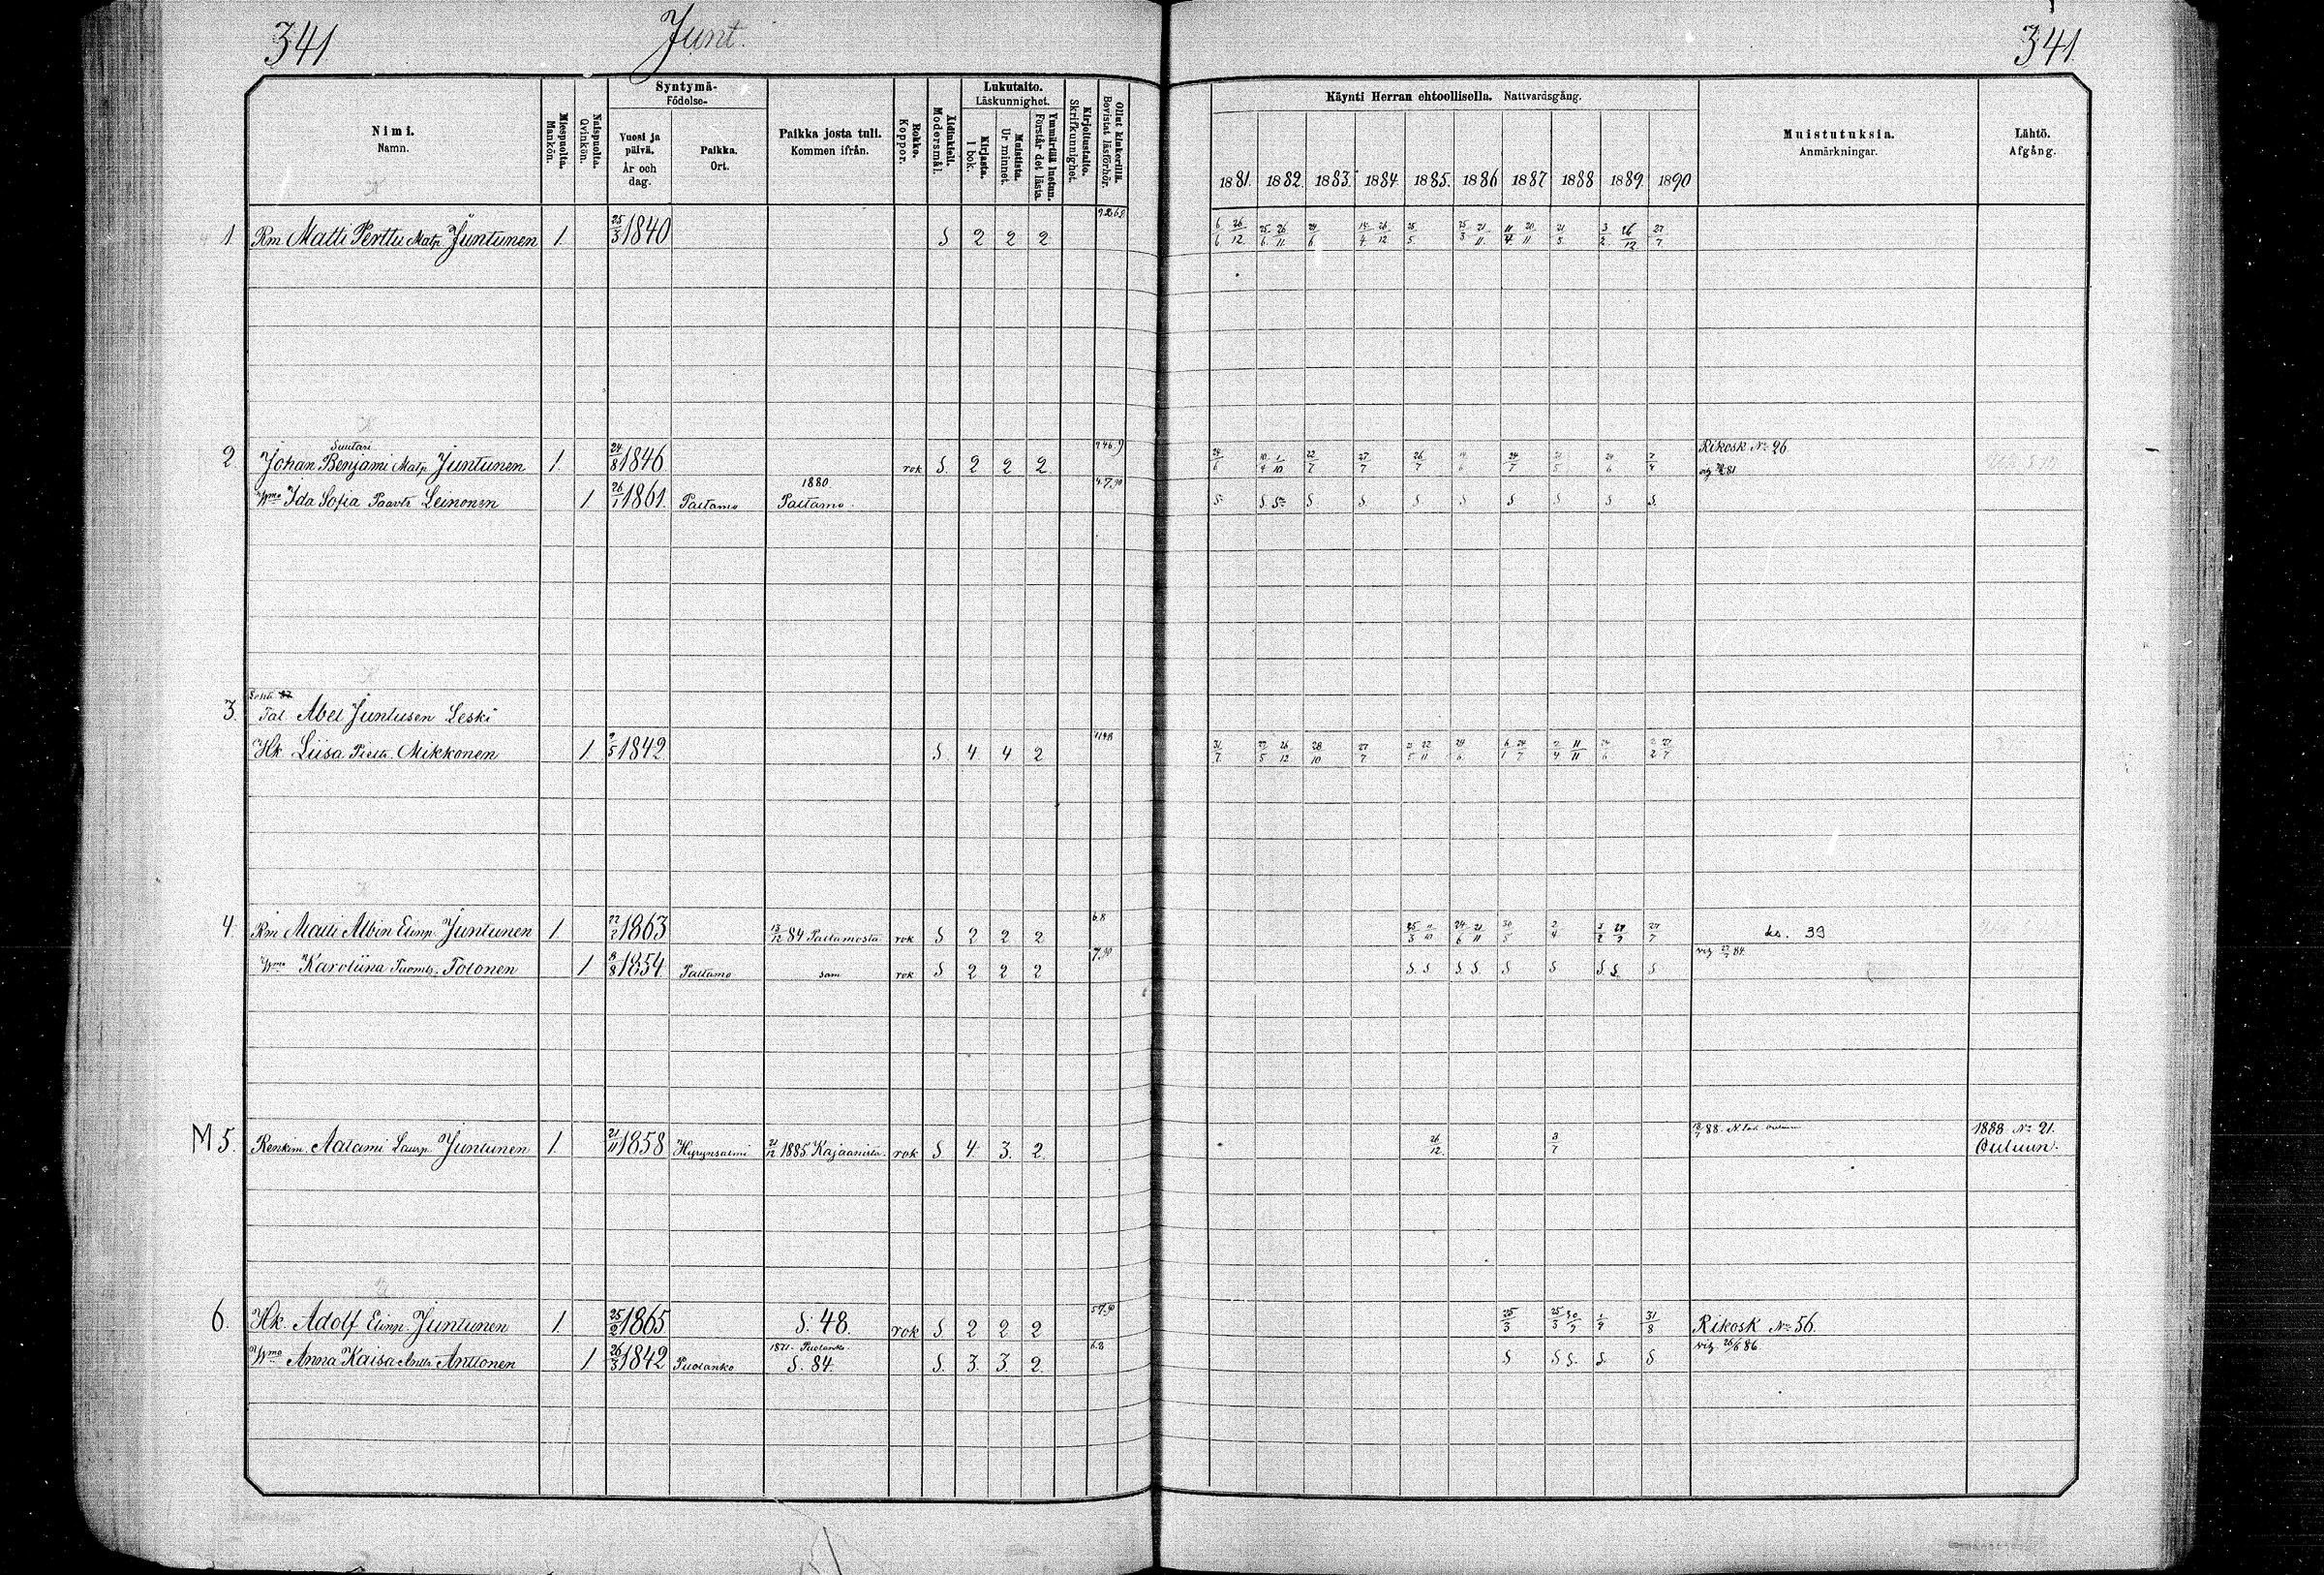 341. Junt. 341.
Nimi. Namn.
Miespuolta. Mankön.
Naispuolta. Qvinkön.
Syntymä- Födelse-
Vuosi ja päivä. År och dag.
Paikka. Ort.
Paikka josta tuli. Kommen ifrån.
Rokko. Koppor.
Äidinkieli. Modersmål.
Lukutaito. Läskunnighet.
Kirjasta. I bok.
Muistista. Ur minnet.
Ymmärtää luetun. Förstår det lästa.
Kirjoitustaito. Skrifkunnighet.
Ollut kinkerillä. Bevistat läsförhör.
Käynti Herran ehtoollisella. Nattvardsgång.
1881. 1882. 1883. 1884. 1885. 1886 1887 1888 1889 1890
Muistutuksia. Anmärkningar.
Lähtö. Afgång.
1 Rm Matti Perttu Matp. Juntunen 1. 25/3 1840 S 2 2 2 6/6 26/12 25/6 26/11 24/6 26/12 25/5 25/3 21/11 11/4 20/11 21/5 3/2 26/12 27/7
Suutari
2. Johan Benjami Matp. Juntunen 1. 24/8 1846 rok S. 2 2 2 24/6 1/10 22/7 27/7 26/7 24/7 21/5 24/6 Rikosk No 26
1880
Wmo Ida Sofia Paavte Leinonen 1. 26/1 1861. Paltamo Paltamo. 4.7.90 S S. S S S S S S S S S.
3. Tal Abel Juntusen Leski
Hk. Liisa Piette. Mikkonen 1. 9/5 1842 S 4 4 2 31/7 27/5 26/12 28/10 27/7 22/11 24/6 6/1 24/7 2/4 11/11 27/7
4. Rm Matti Albin Elinp. Juntunen 1. 22/2 1863 13/12 84 Paltamosta rok S 2 2 2 6.8 25/3 24/6 21/11 30/5 2/4 3/2 27/7 ks. 39
Wmo Karoliina Tuomts. Tolonen 1 8/8 1854. Paltamo sam rok S 2 2 2 7.90 S. S S. S. S S S. S. S vig 84.
M 5. Renkim. Aatami Laurp. Juntunen 1. 21/11 1858 Hyrynsalmi 21/12 1885 Kajaanista. rok S 4. 3. 2. 26/12. 3/7 88. 1888 No 21. Ouluun.
6. Hk. Adolf Elinp. Juntunen 1. 25/2 1865 S. 48. rok S. 2 2 2 5.7.90 25/3 25/3 30/9 31/8 Rikosk No 56.
1871. Puolanko
Wmo Anna Kaisa Antts. Anttonen 1 26/3 1842 Puolanko S. 84. S. 3. 3. 2. 6.8 S S S. S. S vig 26/6 86